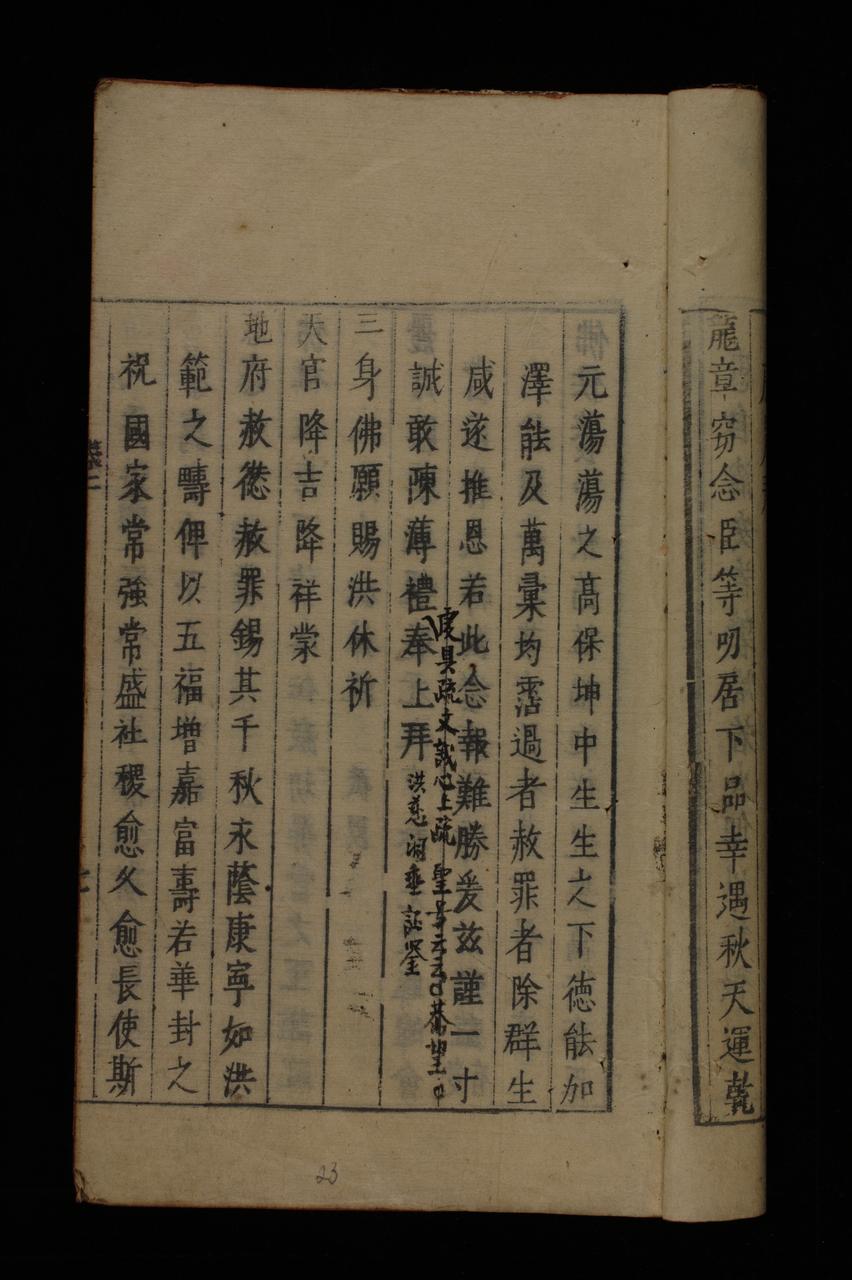 龍章窃念臣等叨居下品幸遇秋天運乾
元蕩蕩之髙保坤中生生之下徳能加
澤能及萬彙均霑過者赦罪者除群生
咸遂推恩若此念報難勝爰兹謹一寸
虔具疏文誠心上疏
聖
誠敢陳薄禮奉上拜
洪慈洞垂証鑒
三身佛願賜洪休祈
天官降吉降祥蒙
地府赦愆赦罪錫其千秋永蔭康寧如洪
範之疇俾以五福增嘉富壽若華封之
祝國家常強常盛社稷愈久愈長使斯
23